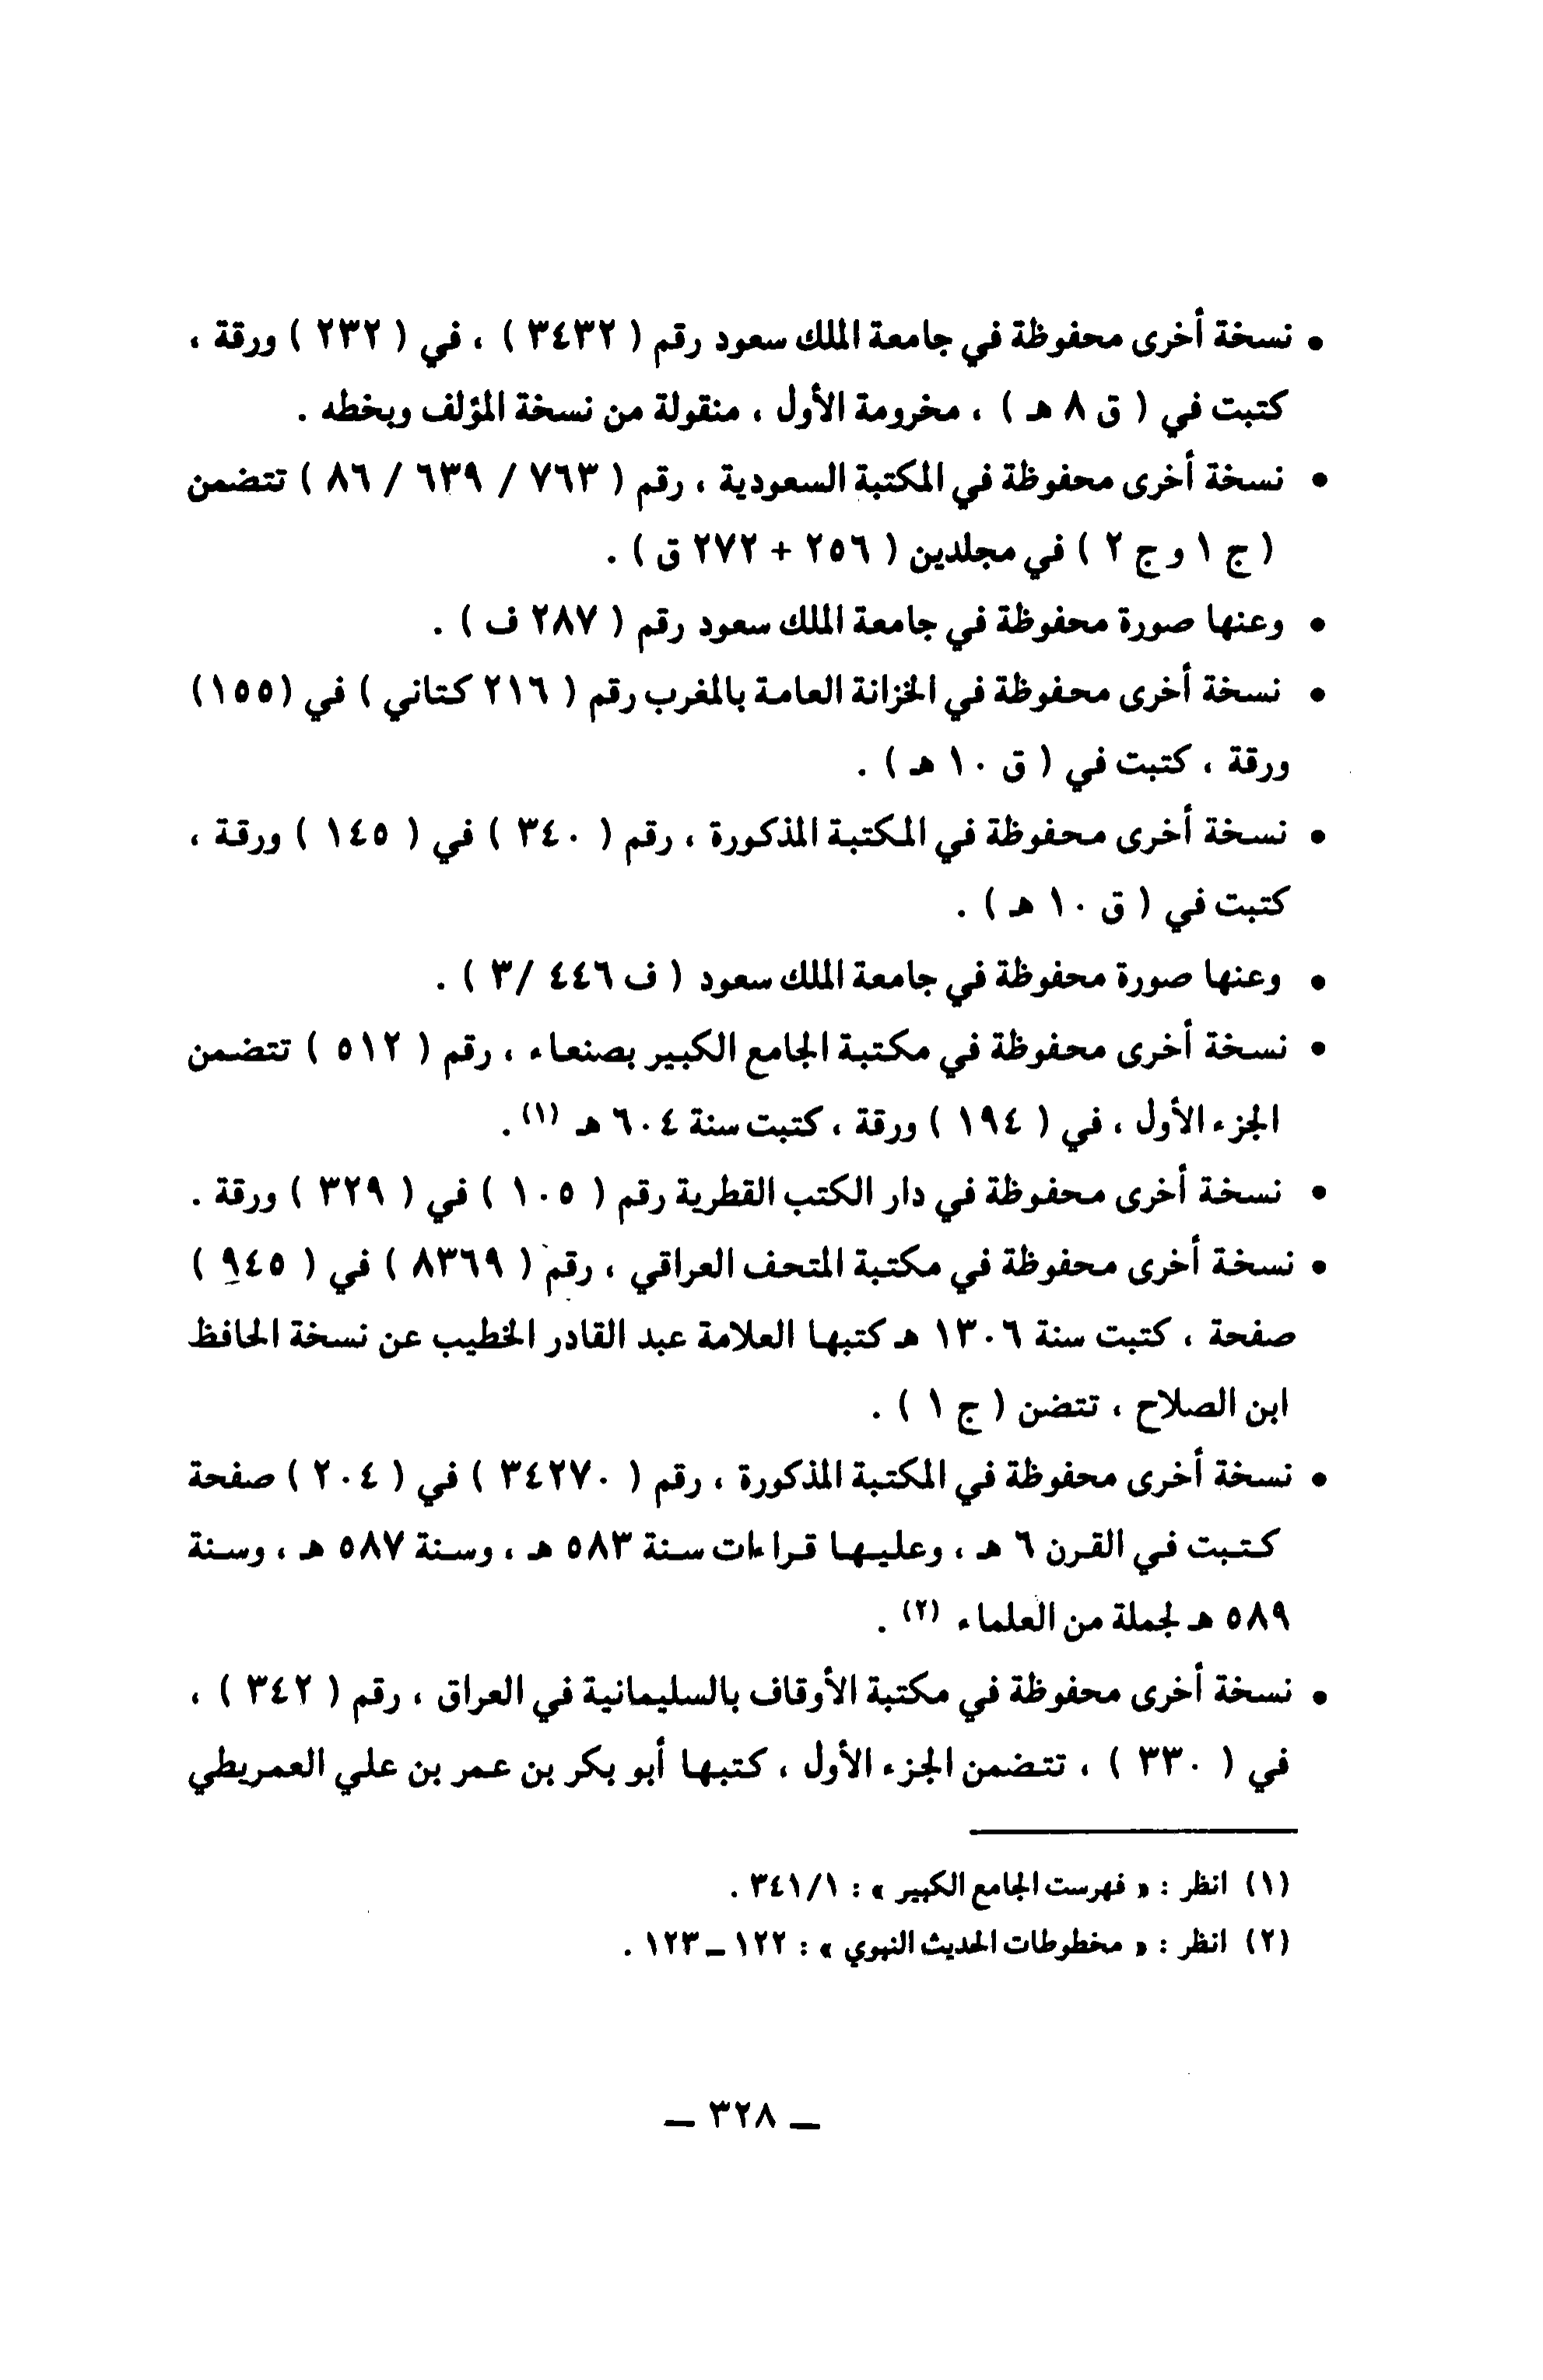 • نسخة أخرى محفوظة في جامعة الملك سعود رقم ( ٣٤٣٢ ) ، في ( ٢٣٢ ) ورقة ،
كتبت في ( ق ٨ هـ ) ، مخرومة الأول ، منقولة من نسخة المؤلف وبخطه .
• نسخة أخرى محفوظة في المكتبة السعودية ، رقم ( ٧٦٣ / ٦٣٩ / ٨٦ ) تتضمن
( ج ١ و ج ٢ ) في مجلدين ( ٢٥٦ + ٢٧٢ ق ) .
• وعنها صورة محفوظة في جامعة الملك سعود رقم ( ٢٨٧ ف ) .
• نسخة أخرى محفوظة في الخزانة العامة بالمغرب رقم ( ٢١٦ كتاني ) في (١٥٥)
ورقة ، كتبت في ( ق ١٠ هـ ) .
• نسخة أخرى محفوظة في المكتبة المذكورة ، رقم ( ٣٤٠ ) في ( ١٤٥ ) ورقة ،
كتبت في ( ق ١٠ هـ ) .
• وعنها صورة محفوظة في جامعة الملك سعود ( ف ٤٤٦ /٣ ) .
• نسخة أخرى محفوظة في مكتبة الجامع الكبير بصنعاء ، رقم ( ٥١٢ ) تتضمن
الجزء الأول ، في ( ١٩٤ ) ورقة ، كتبت سنة ٦٠٤ هـ (١).
• نسخة أخرى محفوظة في دار الكتب القطرية رقم ( ١٠٥ ) في ( ٣٢٩ ) ورقة .
• نسخة أخرى محفوظة في مكتبة المتحف العراقي ، رقم ( ٨٣٦٩ ) في ( ٩٤٥ )
صفحة ، كتبت سنة ١٣٠٦ هـ كتبها العلامة عبد القادر الخطيب عن نسخة الحافظ
ابن الصلاح ، تتضن ( ج ١ ) .
• نسخة أخرى محفوظة في المكتبة المذكورة ، رقم ( ٣٤٢٧٠ ) في ( ٢٠٤ ) صفحة
كتبت في القرن ٦ هـ ، وعليها قراءات سنة ٥٨٣ هـ ، وسنة ٥٨٧ هـ ، وسنة
٥٨٩ هـ لجملة من العلماء (٢) .
• نسخة أخرى محفوظة في مكتبة الأوقاف بالسليمانية في العراق ، رقم ( ٣٤٢ ) ،
في ( ٣٣٠ ) ، تتضمن الجزء الأول ، كتبها أبو بكر بن عمر بن علي العمريطي
(١) انظر : « فهرست الجامع الكبير » : ٣٤١/١ .
(٢) انظر : « مخطوطات الحديث النبوي » : ١٢٢ ــ ١٢٣ .
ــ ٣٢٨ ــ